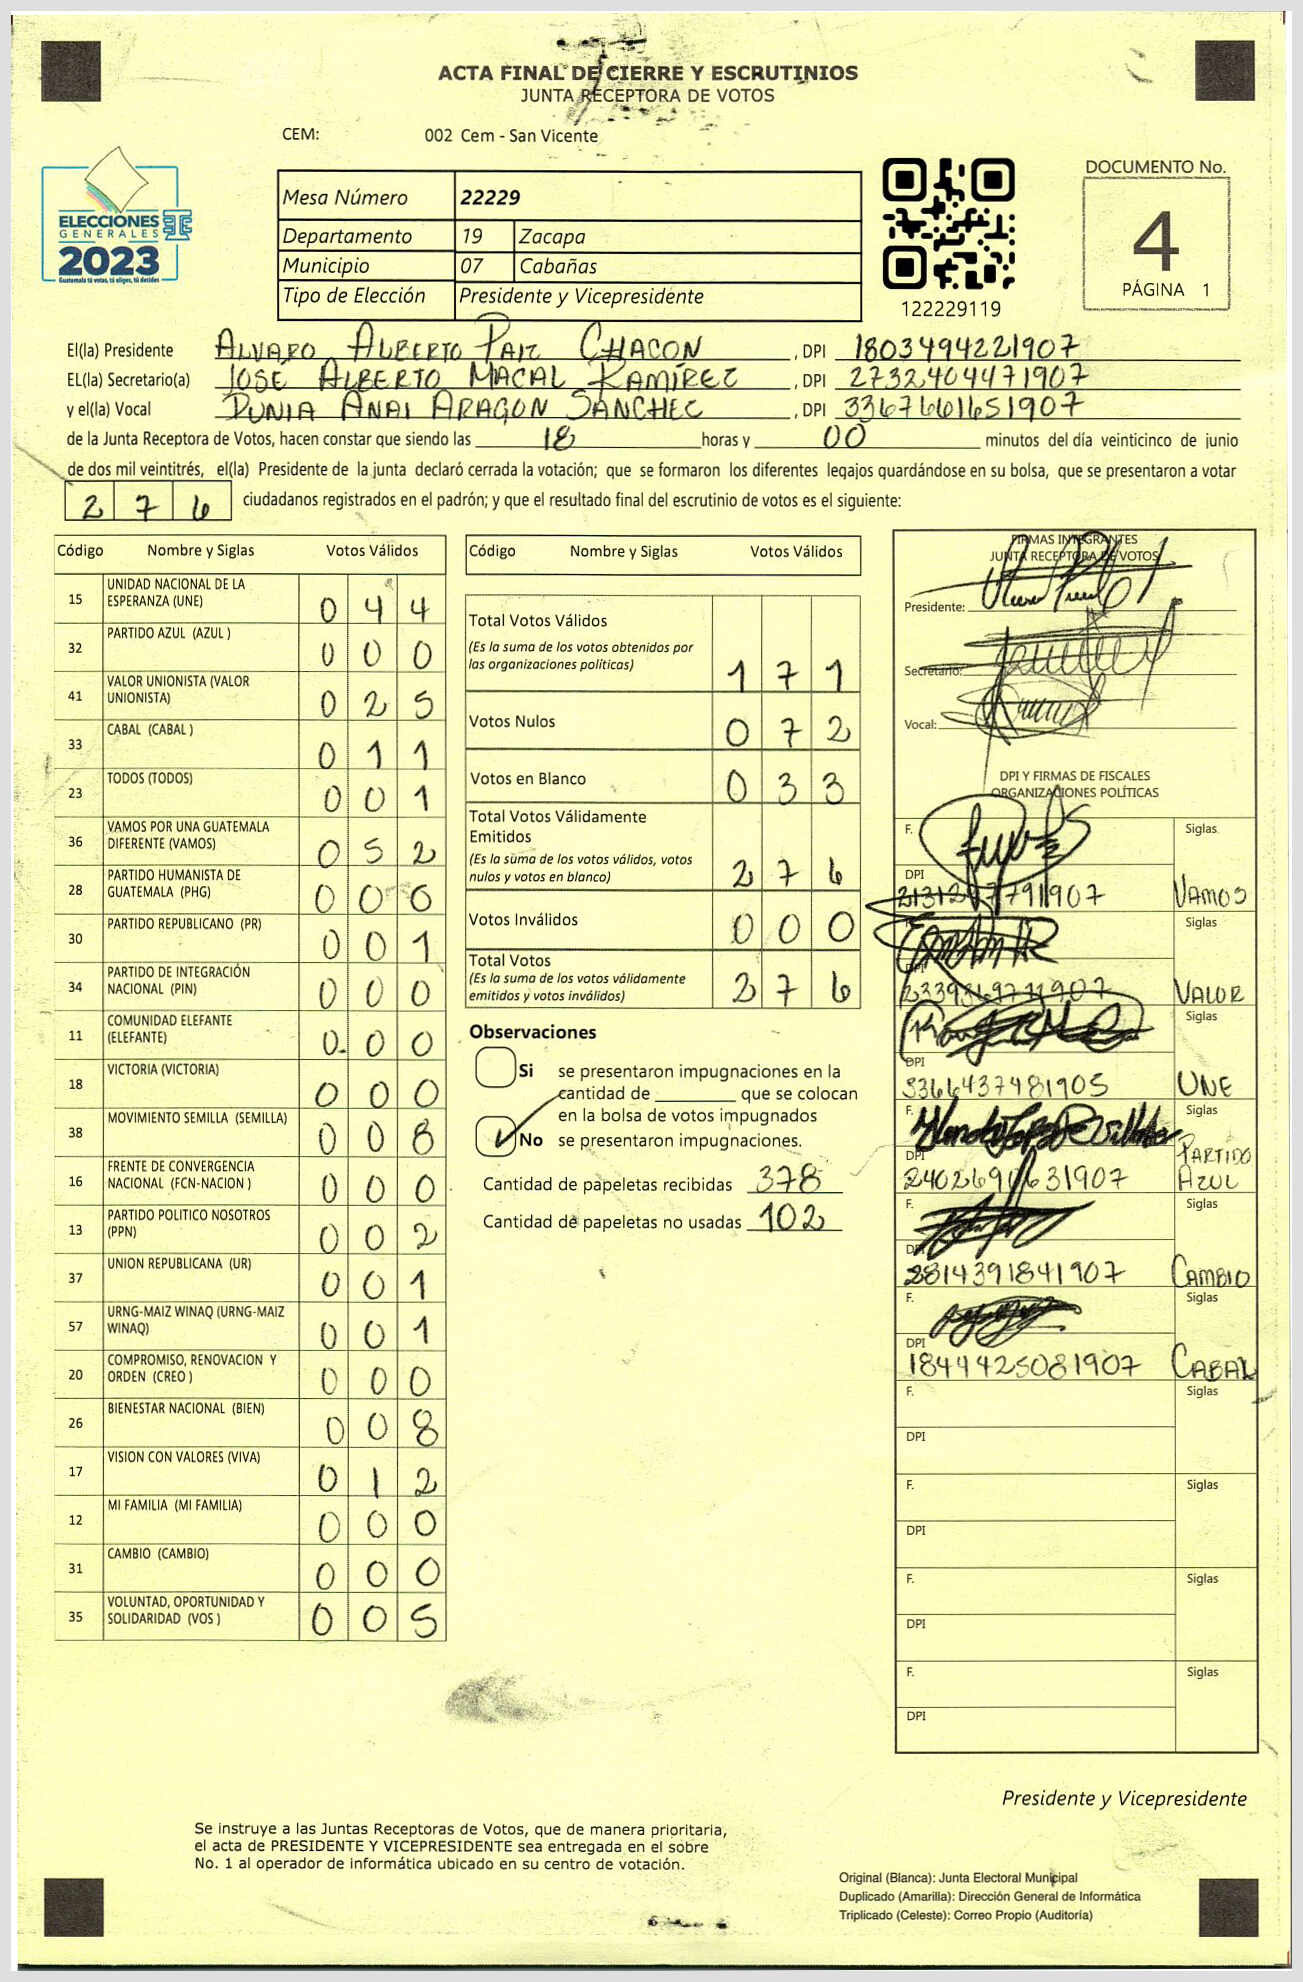 ACTA FINAL DE CIERRE Y ESCRUTINIOS
JUNTA RECEPTORA DE VOTOS
CEM: 002 Cem - San Vicente
ELECCIONES
GENERALES
2023
Guatemala tú votas, tú eliges, tú decides
Mesa Número 22229
Departamento 19 Zacapa
Municipio 07 Cabañas
Tipo de Elección Presidente y Vicepresidente
122229119
DOCUMENTO No.
4
PÁGINA 1
El(la) Presidente ALVARO ALBERTO PAIZ CHACON, DPI 1803494221907
EL(la) Secretario(a) JOSÉ ALBERTO MACAL RAMÍREZ, DPI 2732404471907
y el(la) Vocal DUNIA ANAI ARAGON SANCHEC, DPI 3367661651907
de la Junta Receptora de Votos, hacen constar que siendo las 18 horas y 00 minutos del día veinticinco de junio
de dos mil veintitrés, el(la) Presidente de la junta declaró cerrada la votación; que se formaron los diferentes legajos quardándose en su bolsa, que se presentaron a votar
276 ciudadanos registrados en el padrón; y que el resultado final del escrutinio de votos es el siguiente:
Código Nombre y Siglas Votos Válidos
15 UNIDAD NACIONAL DE LA ESPERANZA (UNE) 044
32 PARTIDO AZUL (AZUL ) 000
41 VALOR UNIONISTA (VALOR UNIONISTA) 025
33 CABAL (CABAL ) 011
23 TODOS (TODOS) 001
36 VAMOS POR UNA GUATEMALA DIFERENTE (VAMOS) 052
28 PARTIDO HUMANISTA DE GUATEMALA (PHG) 000
30 PARTIDO REPUBLICANO (PR) 001
34 PARTIDO DE INTEGRACIÓN NACIONAL (PIN) 000
11 COMUNIDAD ELEFANTE (ELEFANTE) 000
18 VICTORIA (VICTORIA) 000
38 MOVIMIENTO SEMILLA (SEMILLA) 008
16 FRENTE DE CONVERGENCIA NACIONAL (FCN-NACION ) 000
13 PARTIDO POLITICO NOSOTROS (PPN) 002
37 UNION REPUBLICANA (UR) 001
57 URNG-MAIZ WINAQ (URNG-MAIZ WINAQ) 001
20 COMPROMISO, RENOVACION Y ORDEN (CREO ) 000
26 BIENESTAR NACIONAL (BIEN) 008
17 VISION CON VALORES (VIVA) 012
12 MI FAMILIA (MI FAMILIA) 000
31 CAMBIO (CAMBIO) 000
35 VOLUNTAD, OPORTUNIDAD Y SOLIDARIDAD (VOS ) 005
Código Nombre y Siglas Votos Válidos
Total Votos Válidos 171
(Es la suma de los votos obtenidos por
las organizaciones políticas)
Votos Nulos 072
Votos en Blanco 033
Total Votos Válidamente
Emitidos 276
(Es la suma de los votos válidos, votos
nulos y votos en blanco)
Votos Inválidos 000
Total Votos 276
(Es la suma de los votos válidamente
emitidos y votos inválidos)
Observaciones
Si se presentaron impugnaciones en la
cantidad de ________ que se colocan
en la bolsa de votos impugnados
No se presentaron impugnaciones.
Cantidad de papeletas recibidas 378
Cantidad de papeletas no usadas 102
FIRMAS INTEGRANTES
JUNTA RECEPTORA DE VOTOS
Presidente:
Secretario:
Vocal:
DPI Y FIRMAS DE FISCALES
ORGANIZACIONES POLÍTICAS
F. Siglas
DPI
VAMOS
F. Siglas
DPI
VALOR
Siglas
DPI
3366437481905 UNE
F. Siglas
DPI
PARTIDO
AZUL
F. Siglas
DPI
2814391841907 CAMBIO
F. Siglas
DPI
1844425081907 CABAL
F. Siglas
DPI
F. Siglas
DPI
F. Siglas
DPI
F. Siglas
DPI
Presidente y Vicepresidente
Se instruye a las Juntas Receptoras de Votos, que de manera prioritaria,
el acta de PRESIDENTE Y VICEPRESIDENTE sea entregada en el sobre
No. 1 al operador de informática ubicado en su centro de votación.
Original (Blanca): Junta Electoral Municipal
Duplicado (Amarilla): Dirección General de Informática
Triplicado (Celeste): Correo Propio (Auditoría)